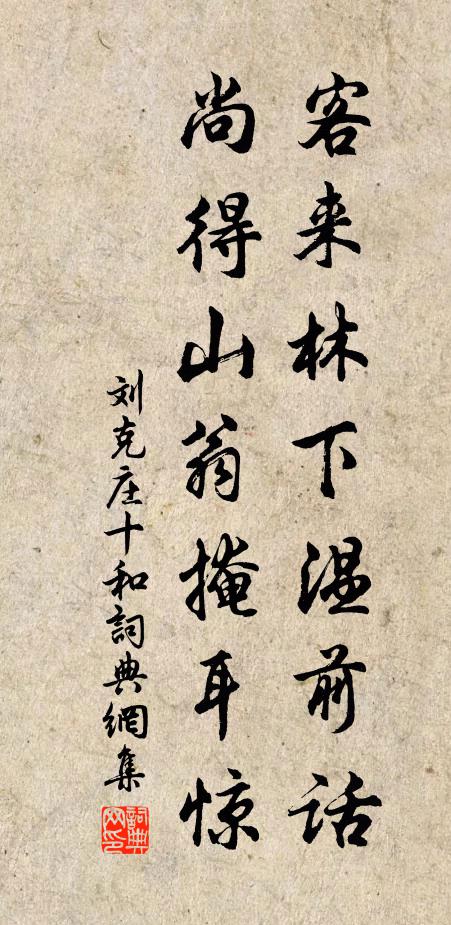 客来林下温前话
尚得山翁掩耳惊
刘克庄十和詞典網集
詞典網印